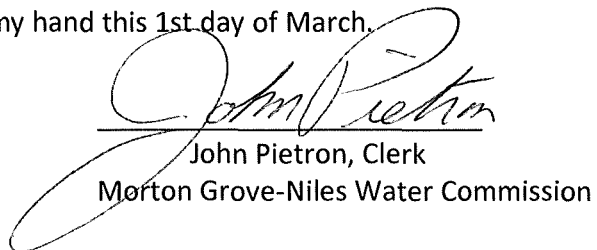 my hand this 1st day of March.
John Pietron
John Pietron, Clerk
Morton Grove-Niles Water Commission